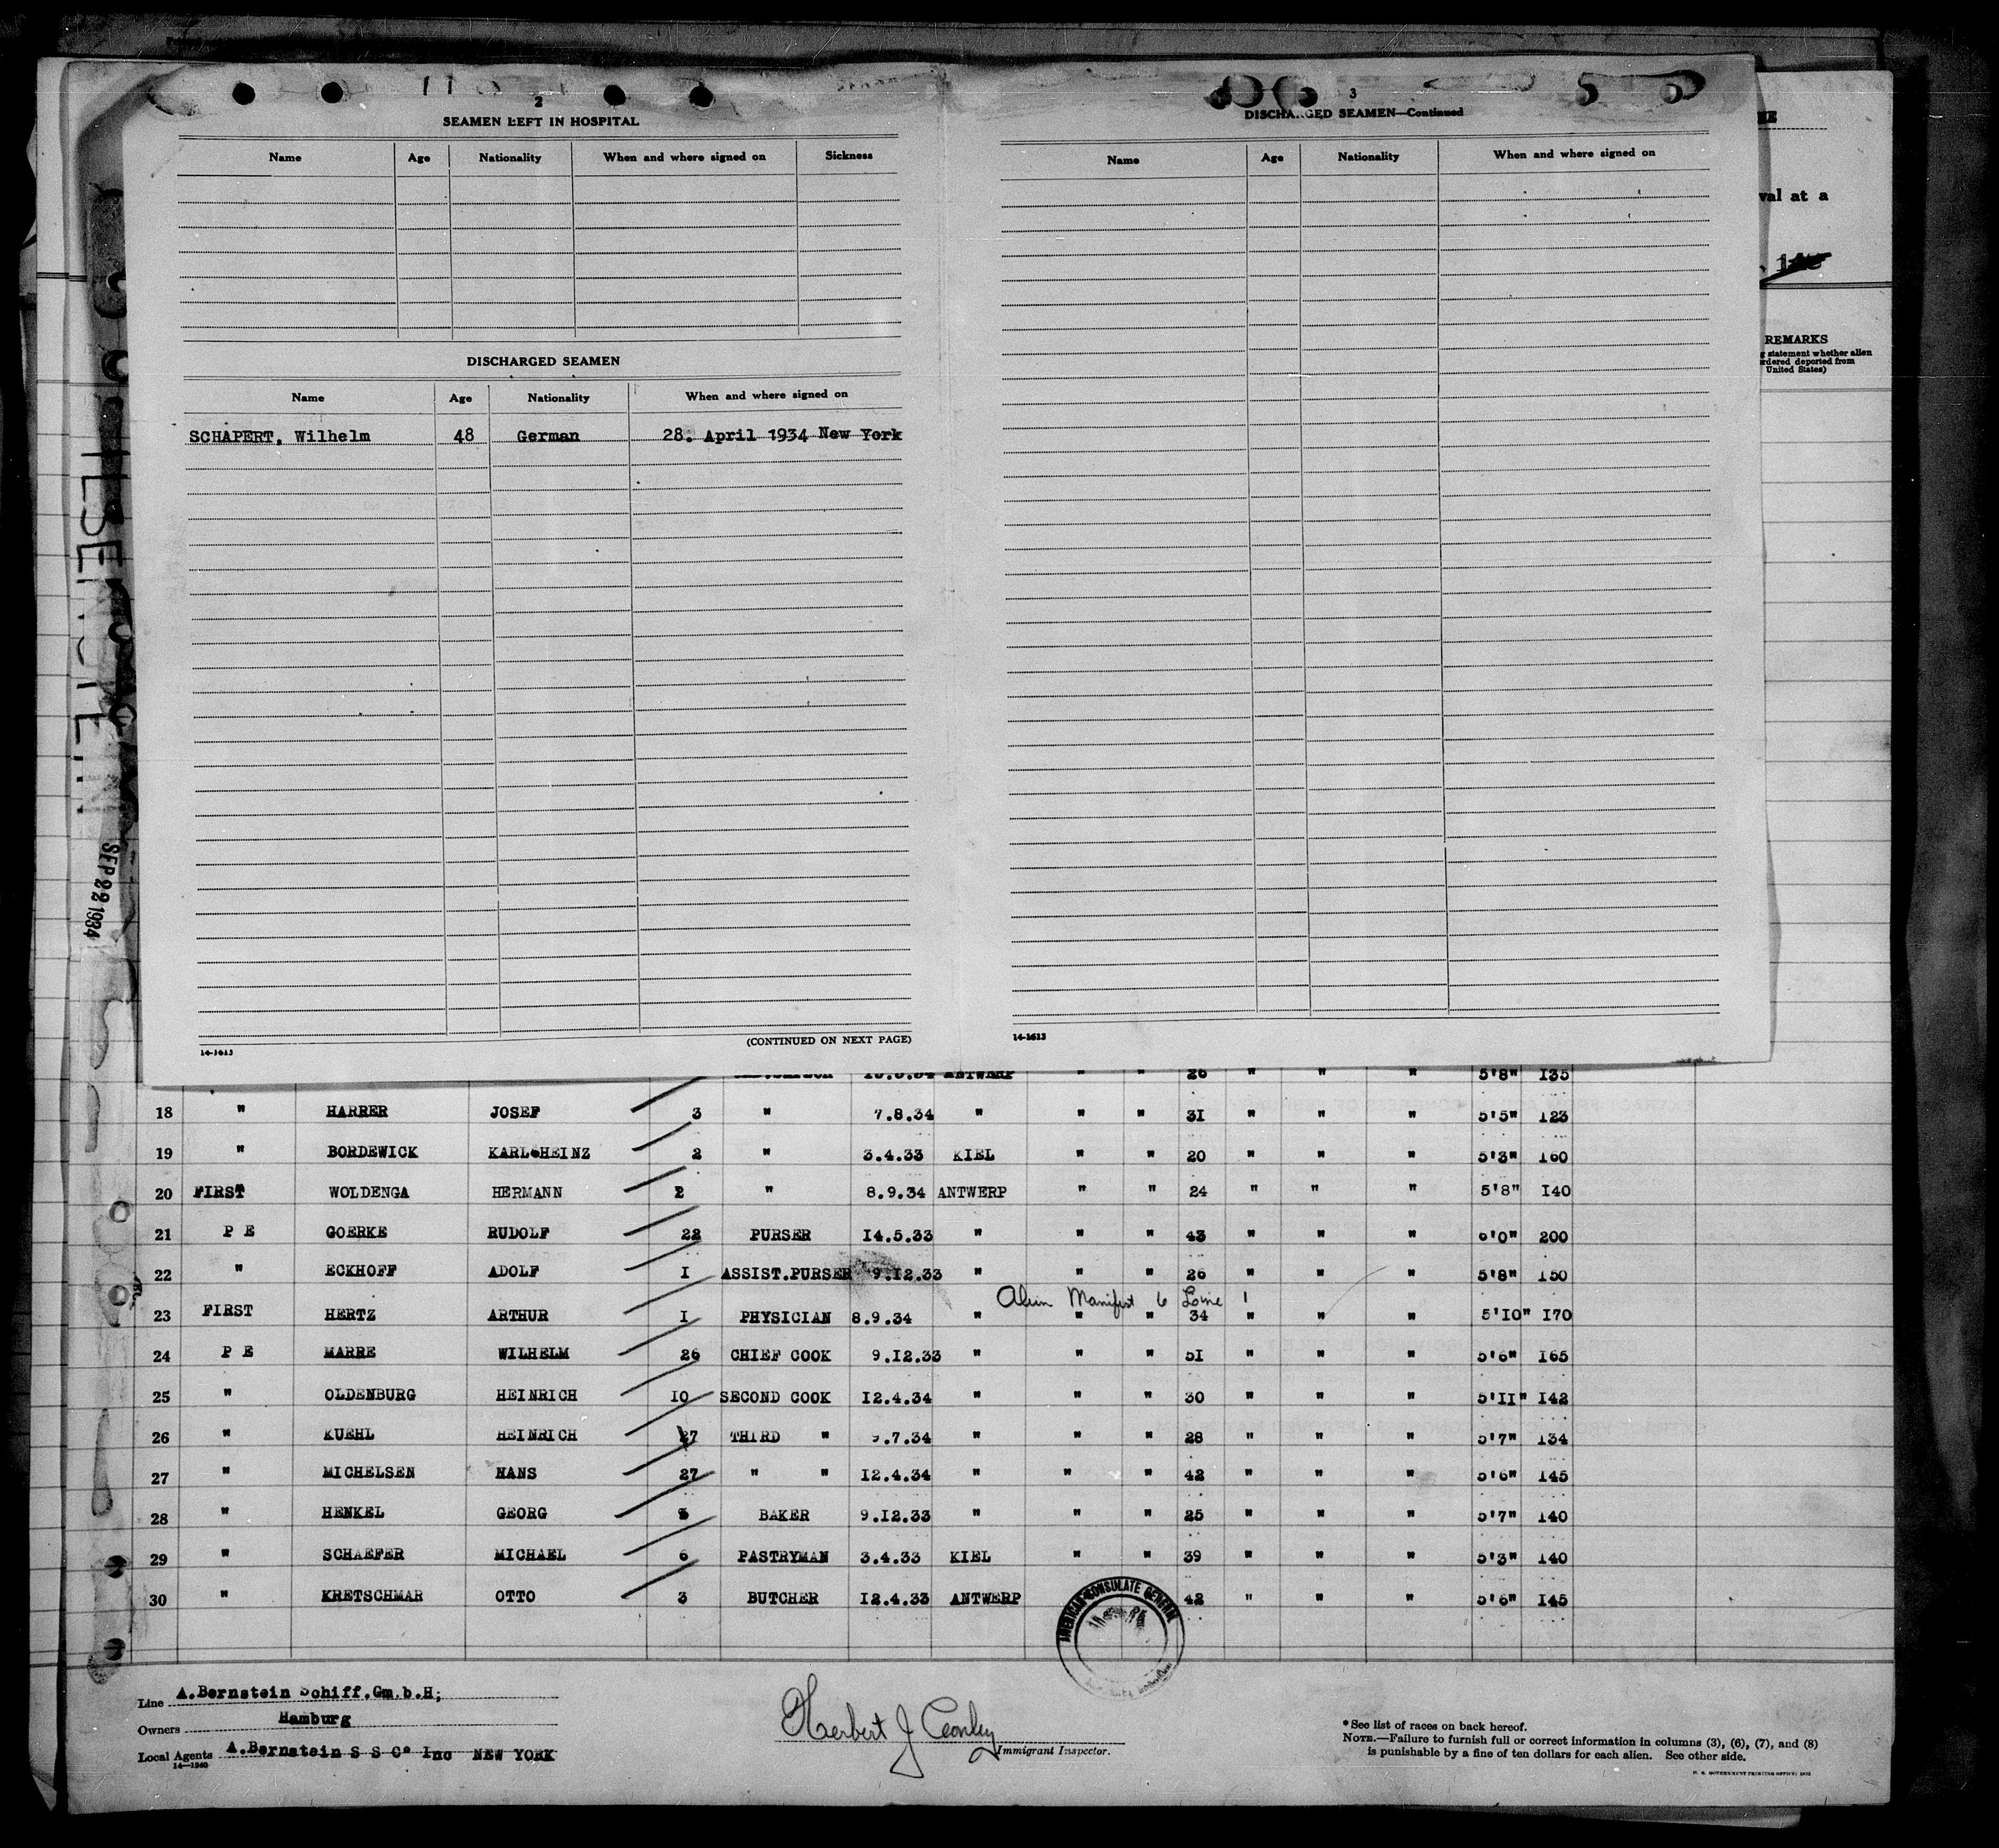 2
SEAMEN LEFT IN HOSPITAL
Name Age Nationality When and where signed on Sickness
DISCHARGED SEAMEN
Name Age Nationality When and where signed on
SCHAPERT, Wilhelm 48 German 28. April 1934 New York
14-1613
(CONTINUED ON NEXT PAGE)
3
DISCHARGED SEAMEN—Continued
Name Age Nationality When and where signed on
14-1613
val at a
REMARKS
statement whether alien
ordered deported from
United States)
ILSENSTEIN
SEP 22 1934
ANTWERP " " 26 " " " 5'8" 135
18 " HARRER JOSEF 3 " 7.8.34 " " " 31 " " " 5'5" 123
19 " BORDEWICK KARL HEINZ 2 " 3.4.33 KIEL " " 20 " " " 5'3" 160
20 FIRST WOLDENGA HERMANN 2 " 8.9.34 ANTWERP " " 24 " " " 5'8" I40
21 P E GOERKE RUDOLF 22 PURSER I4.5.33 " " " 43 " " " 6'0" 200
22 " ECKHOFF ADOLF I ASSIST.PURSER 9.I2.33 " " " 26 " " " 5'8" 150
Alien Manifest 6 Line 1
23 FIRST HERTZ ARTHUR I PHYSICIAN 8.9.34 " " " 34 " " " 5'IO" I70
24 P E MARRE WILHELM 26 CHIEF COOK 9.I2.33 " " " 51 " " " 5'6" I65
25 " OLDENBURG HEINRICH IO SECOND COOK I2.4.34 " " " 30 " " " 5'II" I42
26 " KUEHL HEINRICH 27 THIRD " 9.7.34 " " " 28 " " " 5'7" 134
27 " MICHELSEN HANS 27 " " I2.4.34 " " " 42 " " " 5'6" 145
28 " HENKEL GEORG 5 BAKER 9.I2.33 " " " 25 " " " 5'7" 140
29 " SCHAEFER MICHAEL 6 PASTRYMAN 3.4.33 KIEL " " 39 " " " 5'3" 140
30 " KRETSCHMAR OTTO 3 BUTCHER I2.4.33 ANTWERP 42 " " " 5'6" I45
AMERICAN CONSULATE GENERAL
Line A.Bernstein Schiff.Gm.b.H;
Owners Hamburg
Local Agents A.Bernstein S S Co Inc NEW YORK
14—1240
Herbert J Conley
Immigrant Inspector.
* See list of races on back hereof.
NOTE.—Failure to furnish full or correct information in columns (3), (6), (7), and (8)
is punishable by a fine of ten dollars for each alien. See other side.
U. S. GOVERNMENT PRINTING OFFICE: 1932